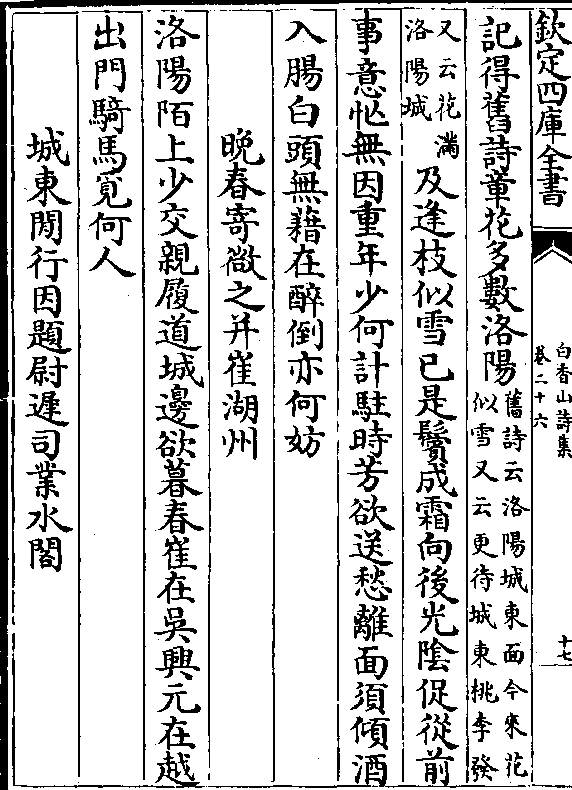 欽定四庫全書
白香山詩集
卷二十六
十七
記得舊詩章花多數洛陽
舊詩云洛陽城東面今來花
似雪又云更待城東桃李發
又云花滿
洛陽城
及逢枝似雪已是鬢成霜向後光陰促從前
事意忙無因重年少何計駐時芳欲送愁離面須傾酒
入腸白頭無藉在醉倒亦何妨
晚春寄微之并崔湖州
洛陽陌上少交親履道城邊欲暮春崔在吳興元在越
出門騎馬覓何人
城東閒行因題尉遲司業水閣